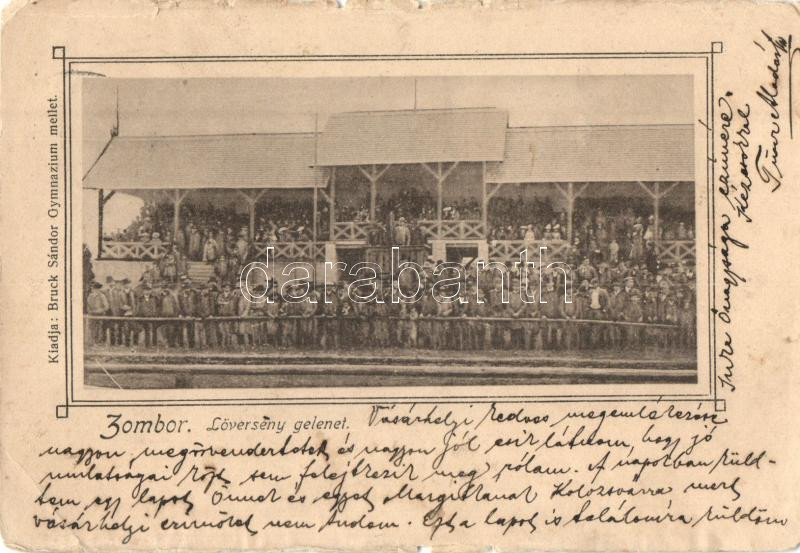 Kiadja: Bruck Sándor Gymnazium mellet.
darabanth
Zombor. Lóverseny gelenet.
Vásárhelyi kedves megemlékezése
nagyon megörvendeztetett és nagyon jól esik látnom, hogy jó
mulatságai közt sem felejtkezik meg rólam. A napokban küld-
tem egy lapot Önnek és egyet Margittának Kolozsvárra mert
vásárhelyi címüket nem tudom. Ezt a lapot is találomra küldöm
Imre Őnagysága címére.
Kézcsókkal